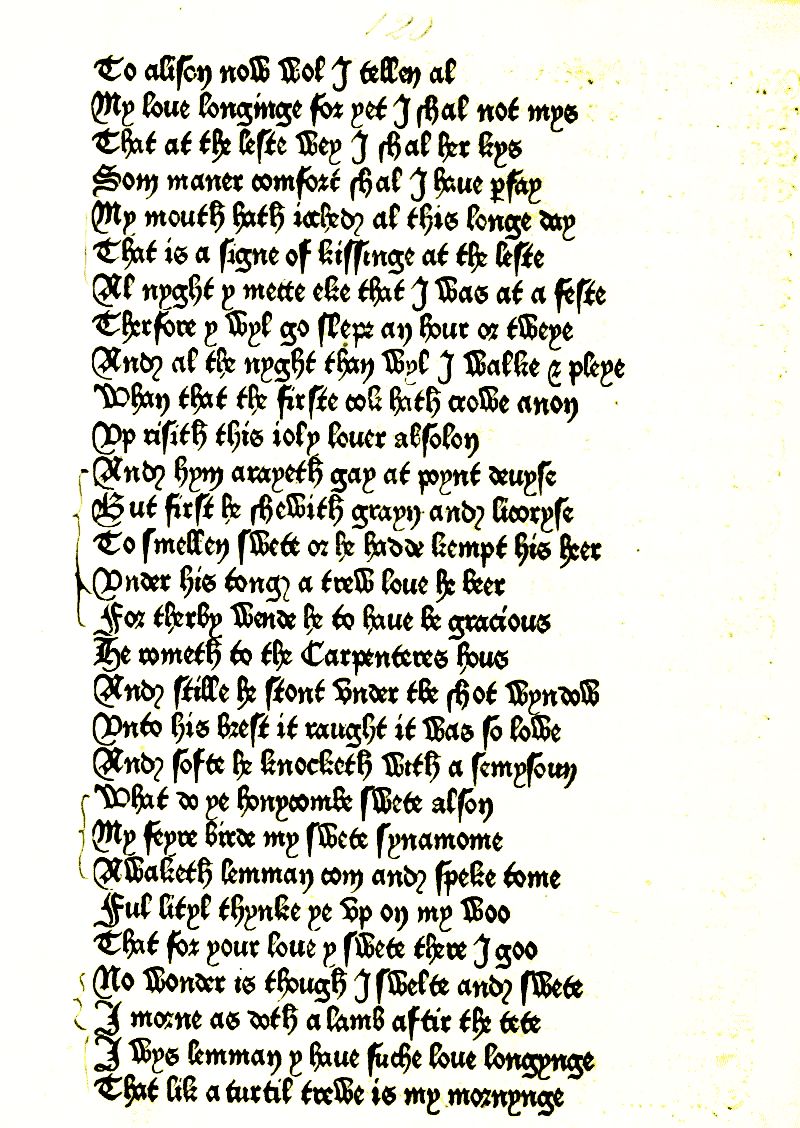 120
To alison now wol I tellen al
My loue longinge for yet I shal not mys
That at the leste wey I shal her kys
Som maner comfort shal I haue ꝑfay
My mouth hath icched al this longe day
That is a signe of kissinge at the leste
Al nyght y mette eke that I was at a feste
Therfore y wyl go slepe an hour or tweye
And al the nyght than wyl I walke & pleye
Whan that the firste cok hath crowe anon
Vp risith this ioly louer absolon
And hym arayeth gay at poynt deuyse
But first he shewith grayn and licoryse
To smellen swete or he hadde kempt his heer
Vnder his tong a trew loue he beer
For therby wende he to haue be gracious
He cometh to the Carpenteres hous
And stille he stont vnder the shot wyndow
Vnto his brest it raught it was so lowe
And softe he knocketh with a semysoun
What do ye honycombe swete alson
My feyre birde my swete synamome
Awaketh lemman com and speke tome
Ful lityl thynke ye vp on my woo
That for your loue y swete there I goo
No wonder is though I swelte and swete
I morne as doth a lamb aftir the tete
I wys lemman y haue suche loue longynge
That lik a turtil trewe is my mornynge